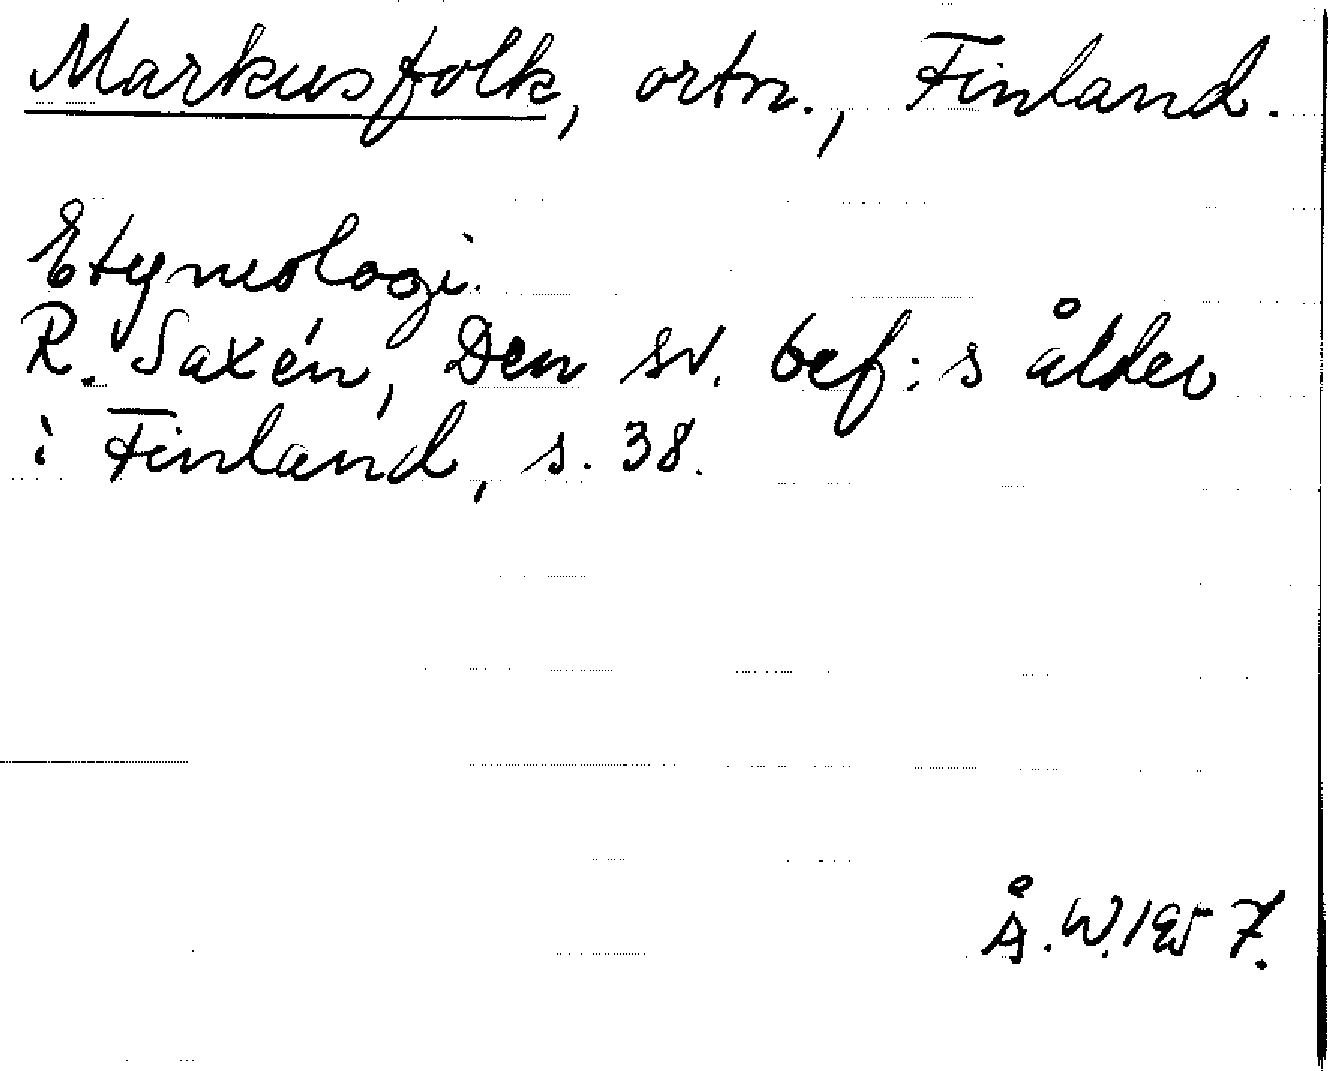 Markusfolk, ortn., Finland.
Etymologi.
R. Saxén, Den sv. bef:s ålder
i Finland, s. 38.
Å.W. 1957.